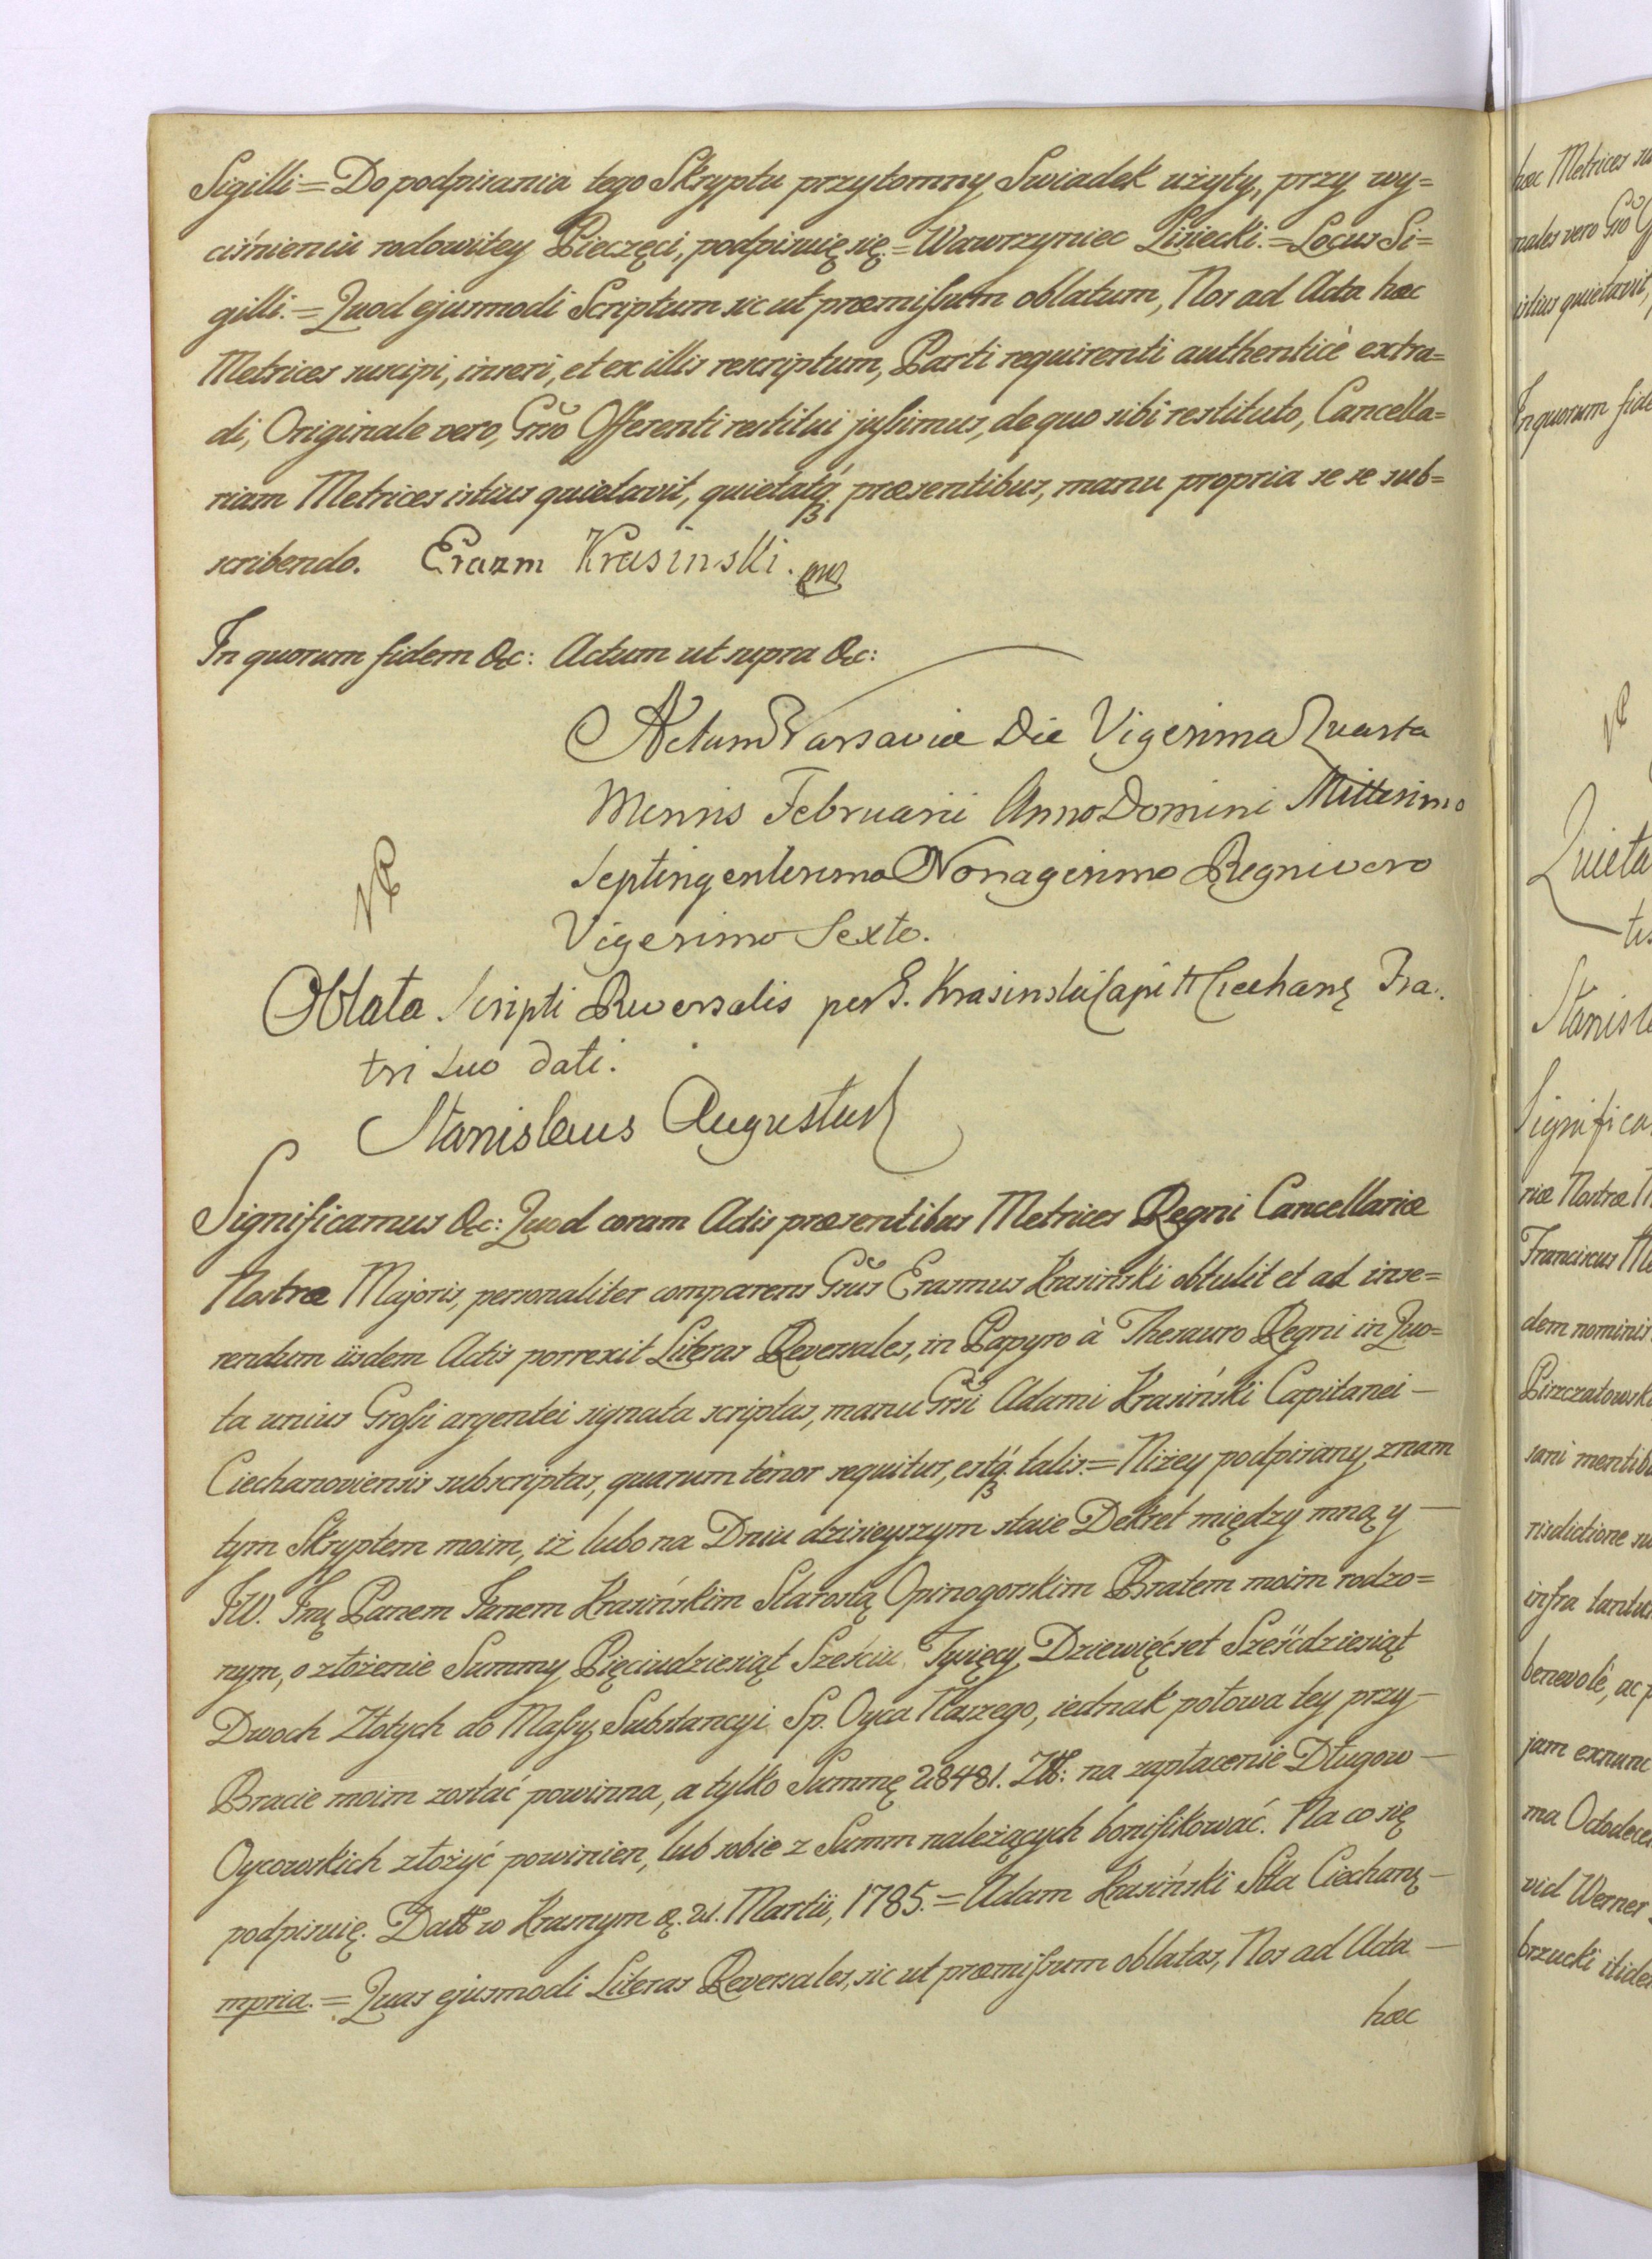 Sigilli = Do podpisania tego Skryptu przytomny Swiadek użyty, przy wy=
ciśnieniu rodowitey Pieczęci, podpisuię się. = Wawrzyniec Lisiecki. = Locus Si=
gilli. = Quod ejusmodi Scriptum sic ut præmissum oblatum, Nos ad Acta hæc
Metrices suscipi, inseri, et ex illis rescriptum, Parti requirenti authenticè extra=
di, Originale vero, Gnso Offerenti restitui jussimus, de quo sibi restituto, Cancella=
riam Metrices istius quietavit, quietatq. præsentibus, manu propria se se sub=
scribendo. Erazm Krasinski. mp
In quorum fidem &c: Actum ut supra &c:
Actum Varsaviæ Die Vigesima Quarta
Mensis Februarii Anno Domini Millesimo
Septingentesimo Nonagesimo Regni vero
Vigesimo Sexto.
Oblata Scripti Reversalis per G. Krasinski Capitt Ciechanę Fra.
tri suo dati.
Stanislaus Augustus
Significamus &c: Quod coram Actis præsentibus Metrices Regni Cancellariæ
Nostræ Majoris, personaliter comparens Gnsus Erasmus Krasiński obtulit et ad inse=
rendum iisdem Actis porrexit Literas Reversales, in Papyro à Thesauro Regni in Quo=
ta unius Grossi argentei signata scriptas, manu Gnsi Adami Krasiński Capitanei —
Ciechanoviensis subscriptas, quarum tènor sequitur, estq. talis. = Niżey podpisany znam
tym Skryptem moim, iż lubo na Dniu dzisieyszym staie Dekret między mną y —
JW. Jmę Panem Janem Krasińskim Starostą Opinogorskim Bratem moim rodzo=
nym, o złożenie Summy Pięciudziesiąt Sześciu Tysięcy Dziewięćset Sześćdziesiąt
Dwoch Złotych do Massy Substancyi Sp. Oyca Naszego, iednak połowa tey przy —
Bracie moim zostać powinna, a tylko Summę 28481. Złł: na zapłacenie Długow —
Oycowskich złożyć powinien, lub sobie z Summ należących bonifikować. Na co się
podpisuię. Datt w Krasnym d. 21. Martii, 1785. = Adam Krasiński Stta Ciechanę —
mpria. = Quas ejusmodi Literas Reversales, sic ut præmissum oblatas, Nos ad Acta —
hæc
hæc Metrices
nales vero Gnso
istius quietavit,
In quorum fide
Stanisl
Significa
riæ Nostræ
Franciscus
dem nominis
sani mentib
risdictione
infra
benevolè, ac
jam exnunc
ma
vid Werner
brzucki itide